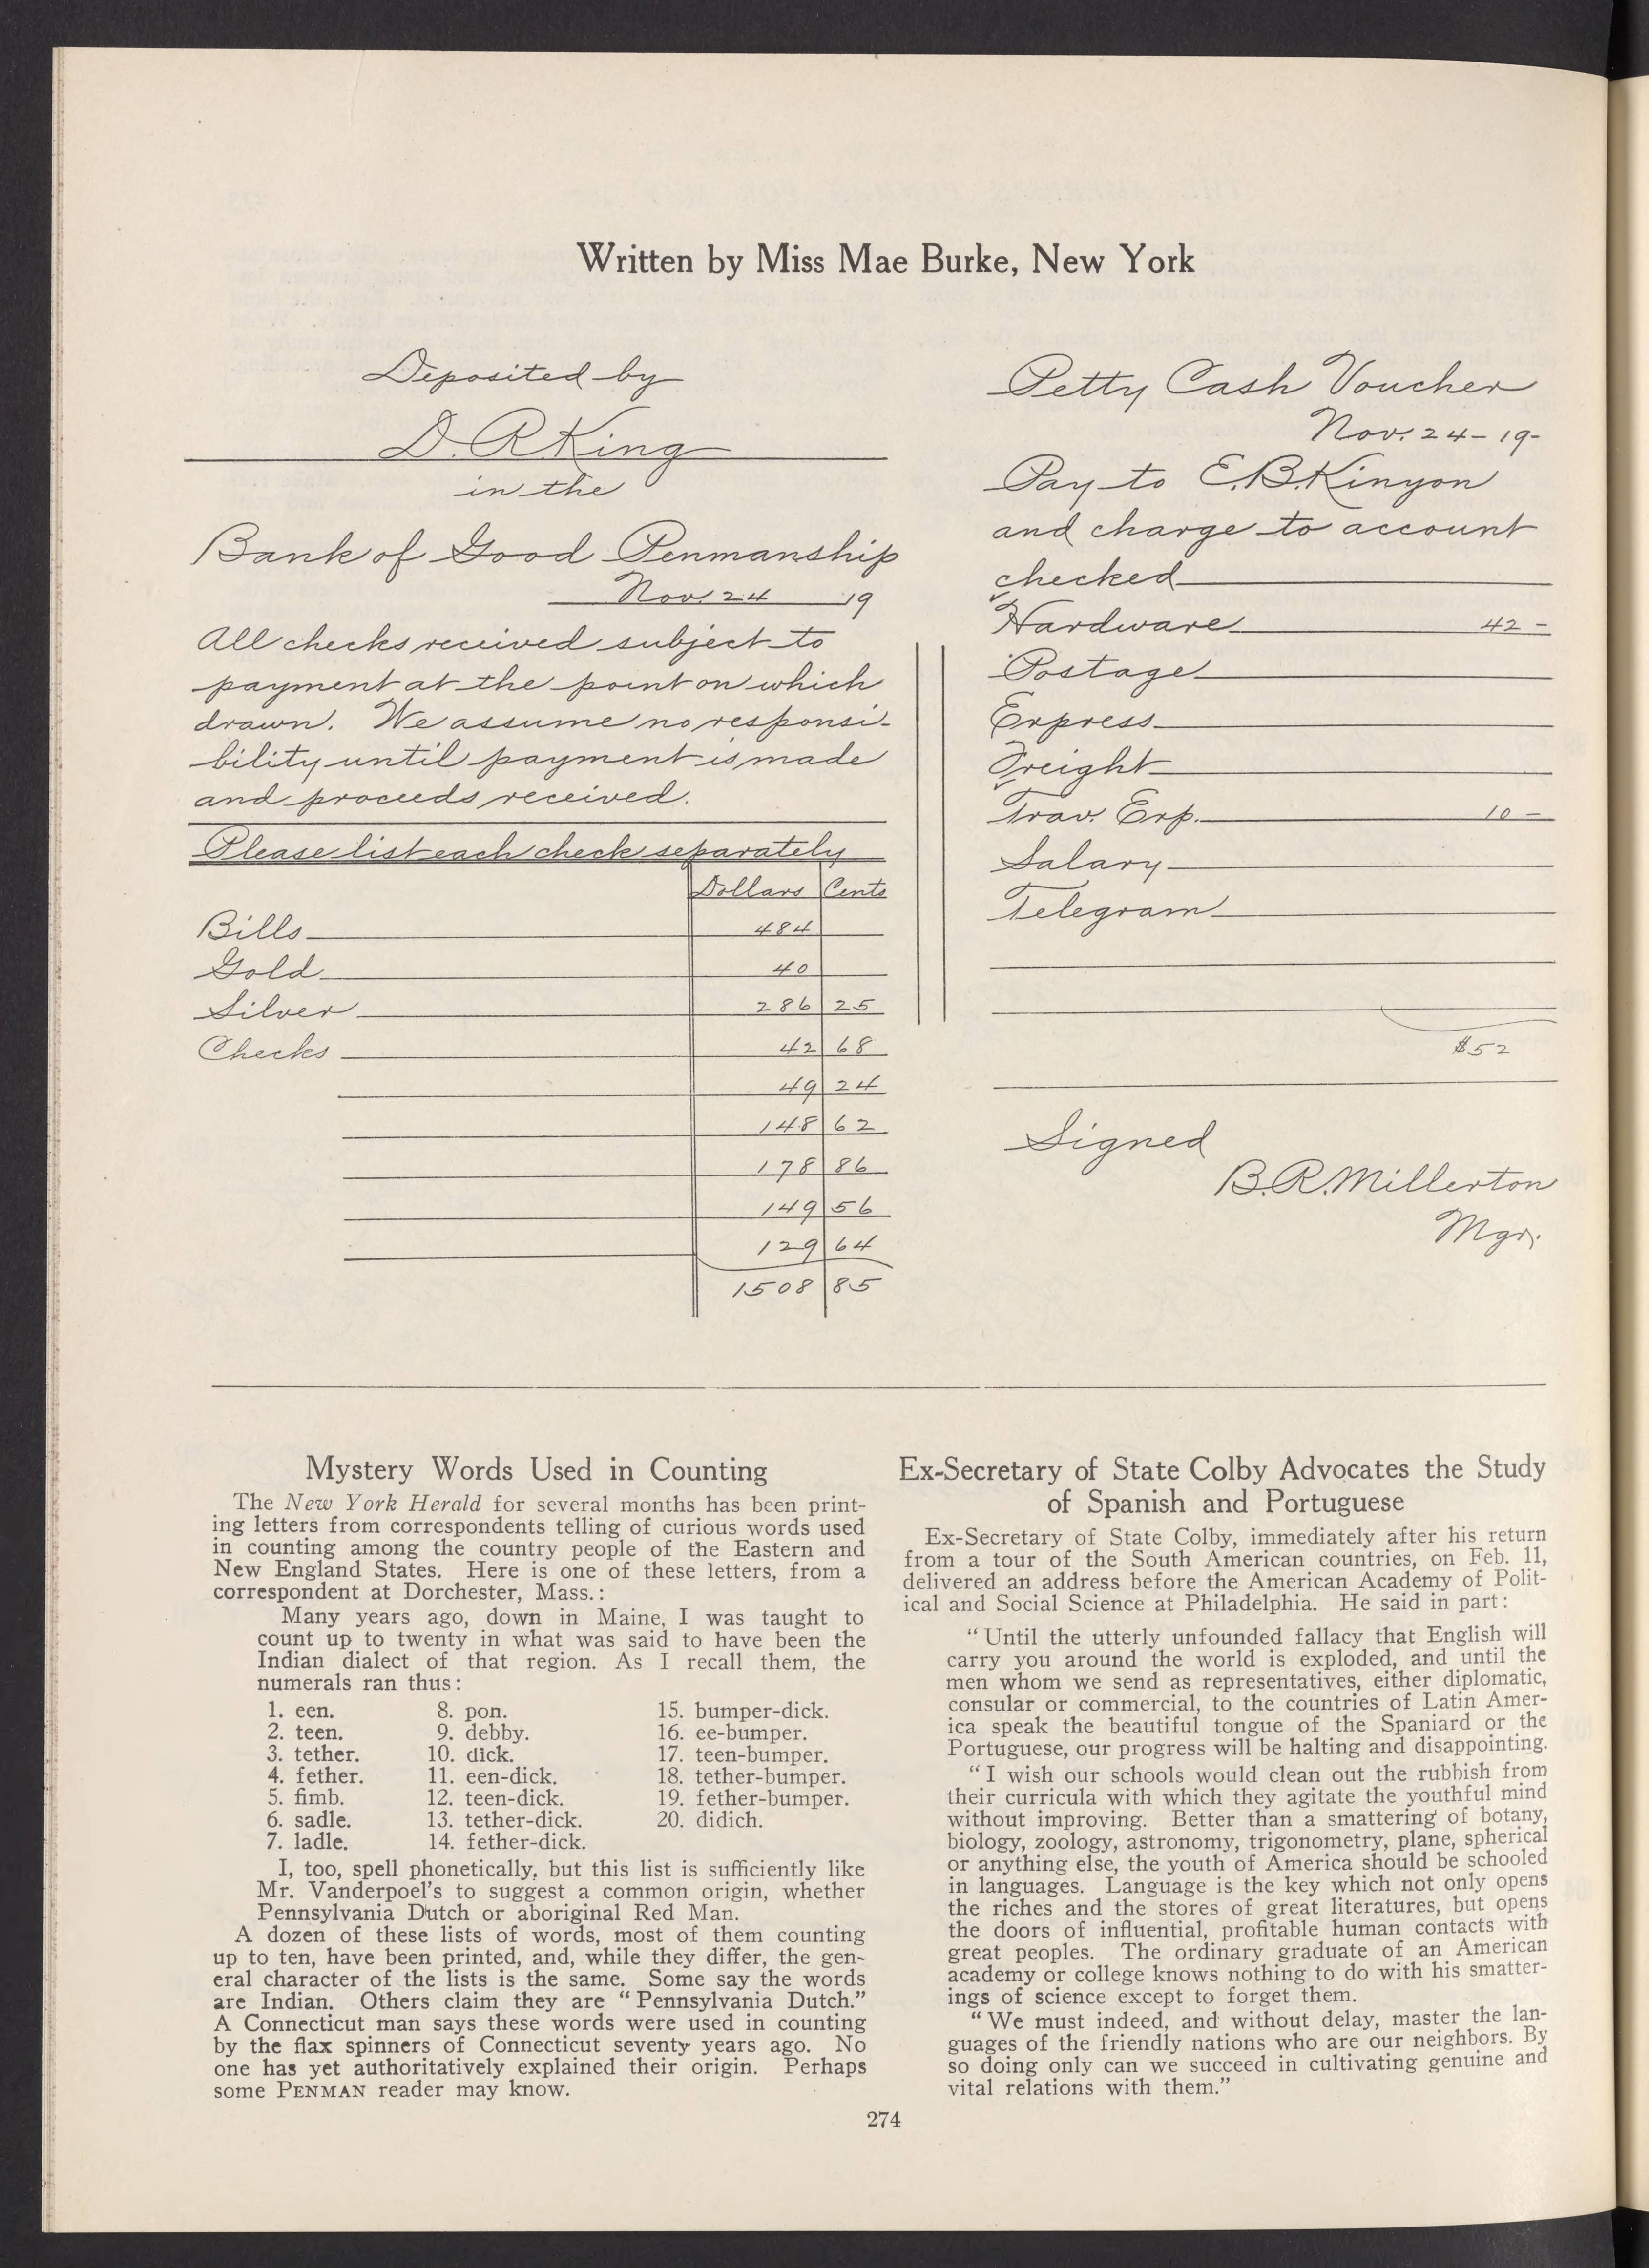 Written by Miss Mae Burke, New York
Deposited by
D. R. King
in the
Bank of Good Penmanship
Nov. 24 19
All checks received subject to
payment at the point on which
drawn. We assume no responsi-
bility until payment is made
and proceeds received.
Please list each check separately
Dollars Cents
Bills 484
Gold 40
Silver 286 25
Checks 42 68
49 24
148 62
178 86
149 56
129 64
1508 85
Petty Cash Voucher
Nov. 24-19-
Pay to E. B. Kinyon
and charge to account
checked
✓
Hardware 42 -
Postage
Express
Freight
✓
Trav. Exp. 10 -
Salary
Telegram
$52
Signed
B. R. Millerton
Mgr.
Mystery Words Used in Counting
The New York Herald for several months has been print-
ing letters from correspondents telling of curious words used
in counting among the country people of the Eastern and
New England States. Here is one of these letters, from a
correspondent at Dorchester, Mass.:
Many years ago, down in Maine, I was taught to
count up to twenty in what was said to have been the
Indian dialect of that region. As I recall them, the
numerals ran thus:
1. een. 8. pon. 15. bumper-dick.
2. teen. 9. debby. 16. ee-bumper.
3. tether. 10. dick. 17. teen-bumper.
4. fether. 11. een-dick. 18. tether-bumper.
5. fimb. 12. teen-dick. 19. fether-bumper.
6. sadle. 13. tether-dick. 20. didich.
7. ladle. 14. fether-dick.
I, too, spell phonetically, but this list is sufficiently like
Mr. Vanderpoel's to suggest a common origin, whether
Pennsylvania Dutch or aboriginal Red Man.
A dozen of these lists of words, most of them counting
up to ten, have been printed, and, while they differ, the gen-
eral character of the lists is the same. Some say the words
are Indian. Others claim they are "Pennsylvania Dutch."
A Connecticut man says these words were used in counting
by the flax spinners of Connecticut seventy years ago. No
one has yet authoritatively explained their origin. Perhaps
some PENMAN reader may know.
Ex-Secretary of State Colby Advocates the Study
of Spanish and Portuguese
Ex-Secretary of State Colby, immediately after his return
from a tour of the South American countries, on Feb. 11,
delivered an address before the American Academy of Polit-
ical and Social Science at Philadelphia. He said in part:
"Until the utterly unfounded fallacy that English will
carry you around the world is exploded, and until the
men whom we send as representatives, either diplomatic,
consular or commercial, to the countries of Latin Amer-
ica speak the beautiful tongue of the Spaniard or the
Portuguese, our progress will be halting and disappointing.
"I wish our schools would clean out the rubbish from
their curricula with which they agitate the youthful mind
without improving. Better than a smattering of botany,
biology, zoology, astronomy, trigonometry, plane, spherical
or anything else, the youth of America should be schooled
in languages. Language is the key which not only opens
the riches and the stores of great literatures, but opens
the doors of influential, profitable human contacts with
great peoples. The ordinary graduate of an American
academy or college knows nothing to do with his smatter-
ings of science except to forget them.
"We must indeed, and without delay, master the lan-
guages of the friendly nations who are our neighbors. By
so doing only can we succeed in cultivating genuine and
vital relations with them."
274